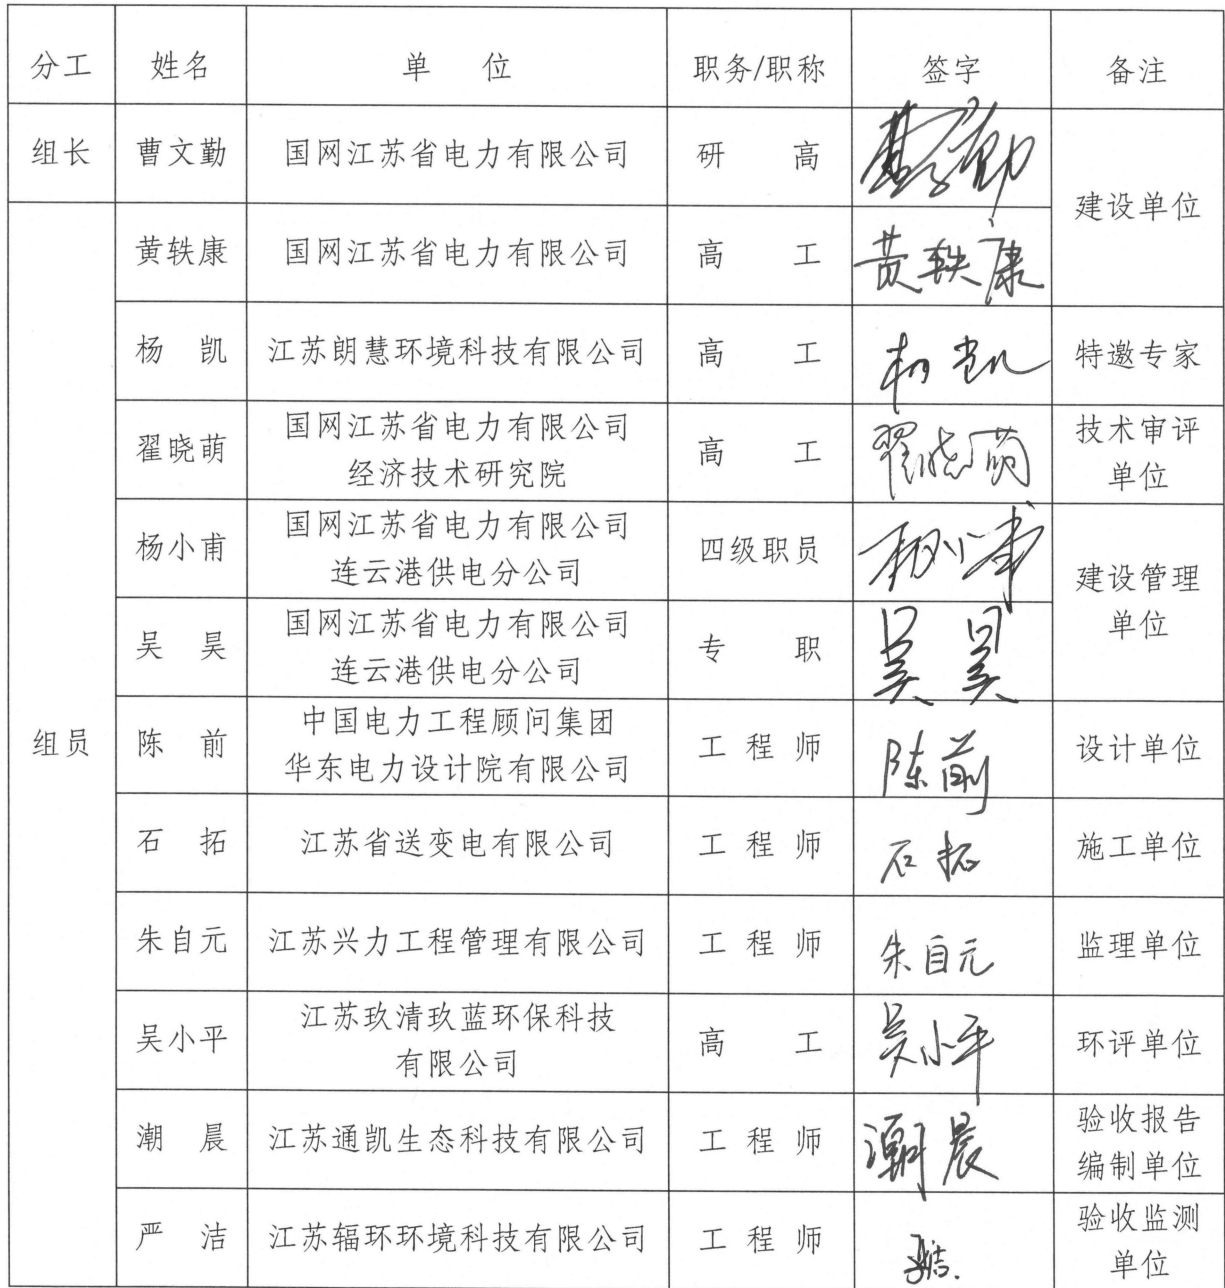 分工 姓名 单 位 职务/职称 签字 备注
组长 曹文勤 国网江苏省电力有限公司 研 高 曹文勤 建设单位
组员
黄轶康 国网江苏省电力有限公司 高 工 黄轶康
杨 凯 江苏朗慧环境科技有限公司 高 工 杨凯 特邀专家
翟晓萌 国网江苏省电力有限公司
经济技术研究院 高 工 翟晓萌 技术审评
单位
杨小甫 国网江苏省电力有限公司
连云港供电分公司 四级职员 杨小甫 建设管理
单位
吴 昊 国网江苏省电力有限公司
连云港供电分公司 专 职 吴昊
陈 前 中国电力工程顾问集团
华东电力设计院有限公司 工 程 师 陈前 设计单位
石 拓 江苏省送变电有限公司 工 程 师 石拓 施工单位
朱自元 江苏兴力工程管理有限公司 工 程 师 朱自元 监理单位
吴小平 江苏玖清玖蓝环保科技
有限公司 高 工 吴小平 环评单位
潮 晨 江苏通凯生态科技有限公司 工 程 师 潮晨 验收报告
编制单位
严 洁 江苏辐环环境科技有限公司 工 程 师 严洁 验收监测
单位